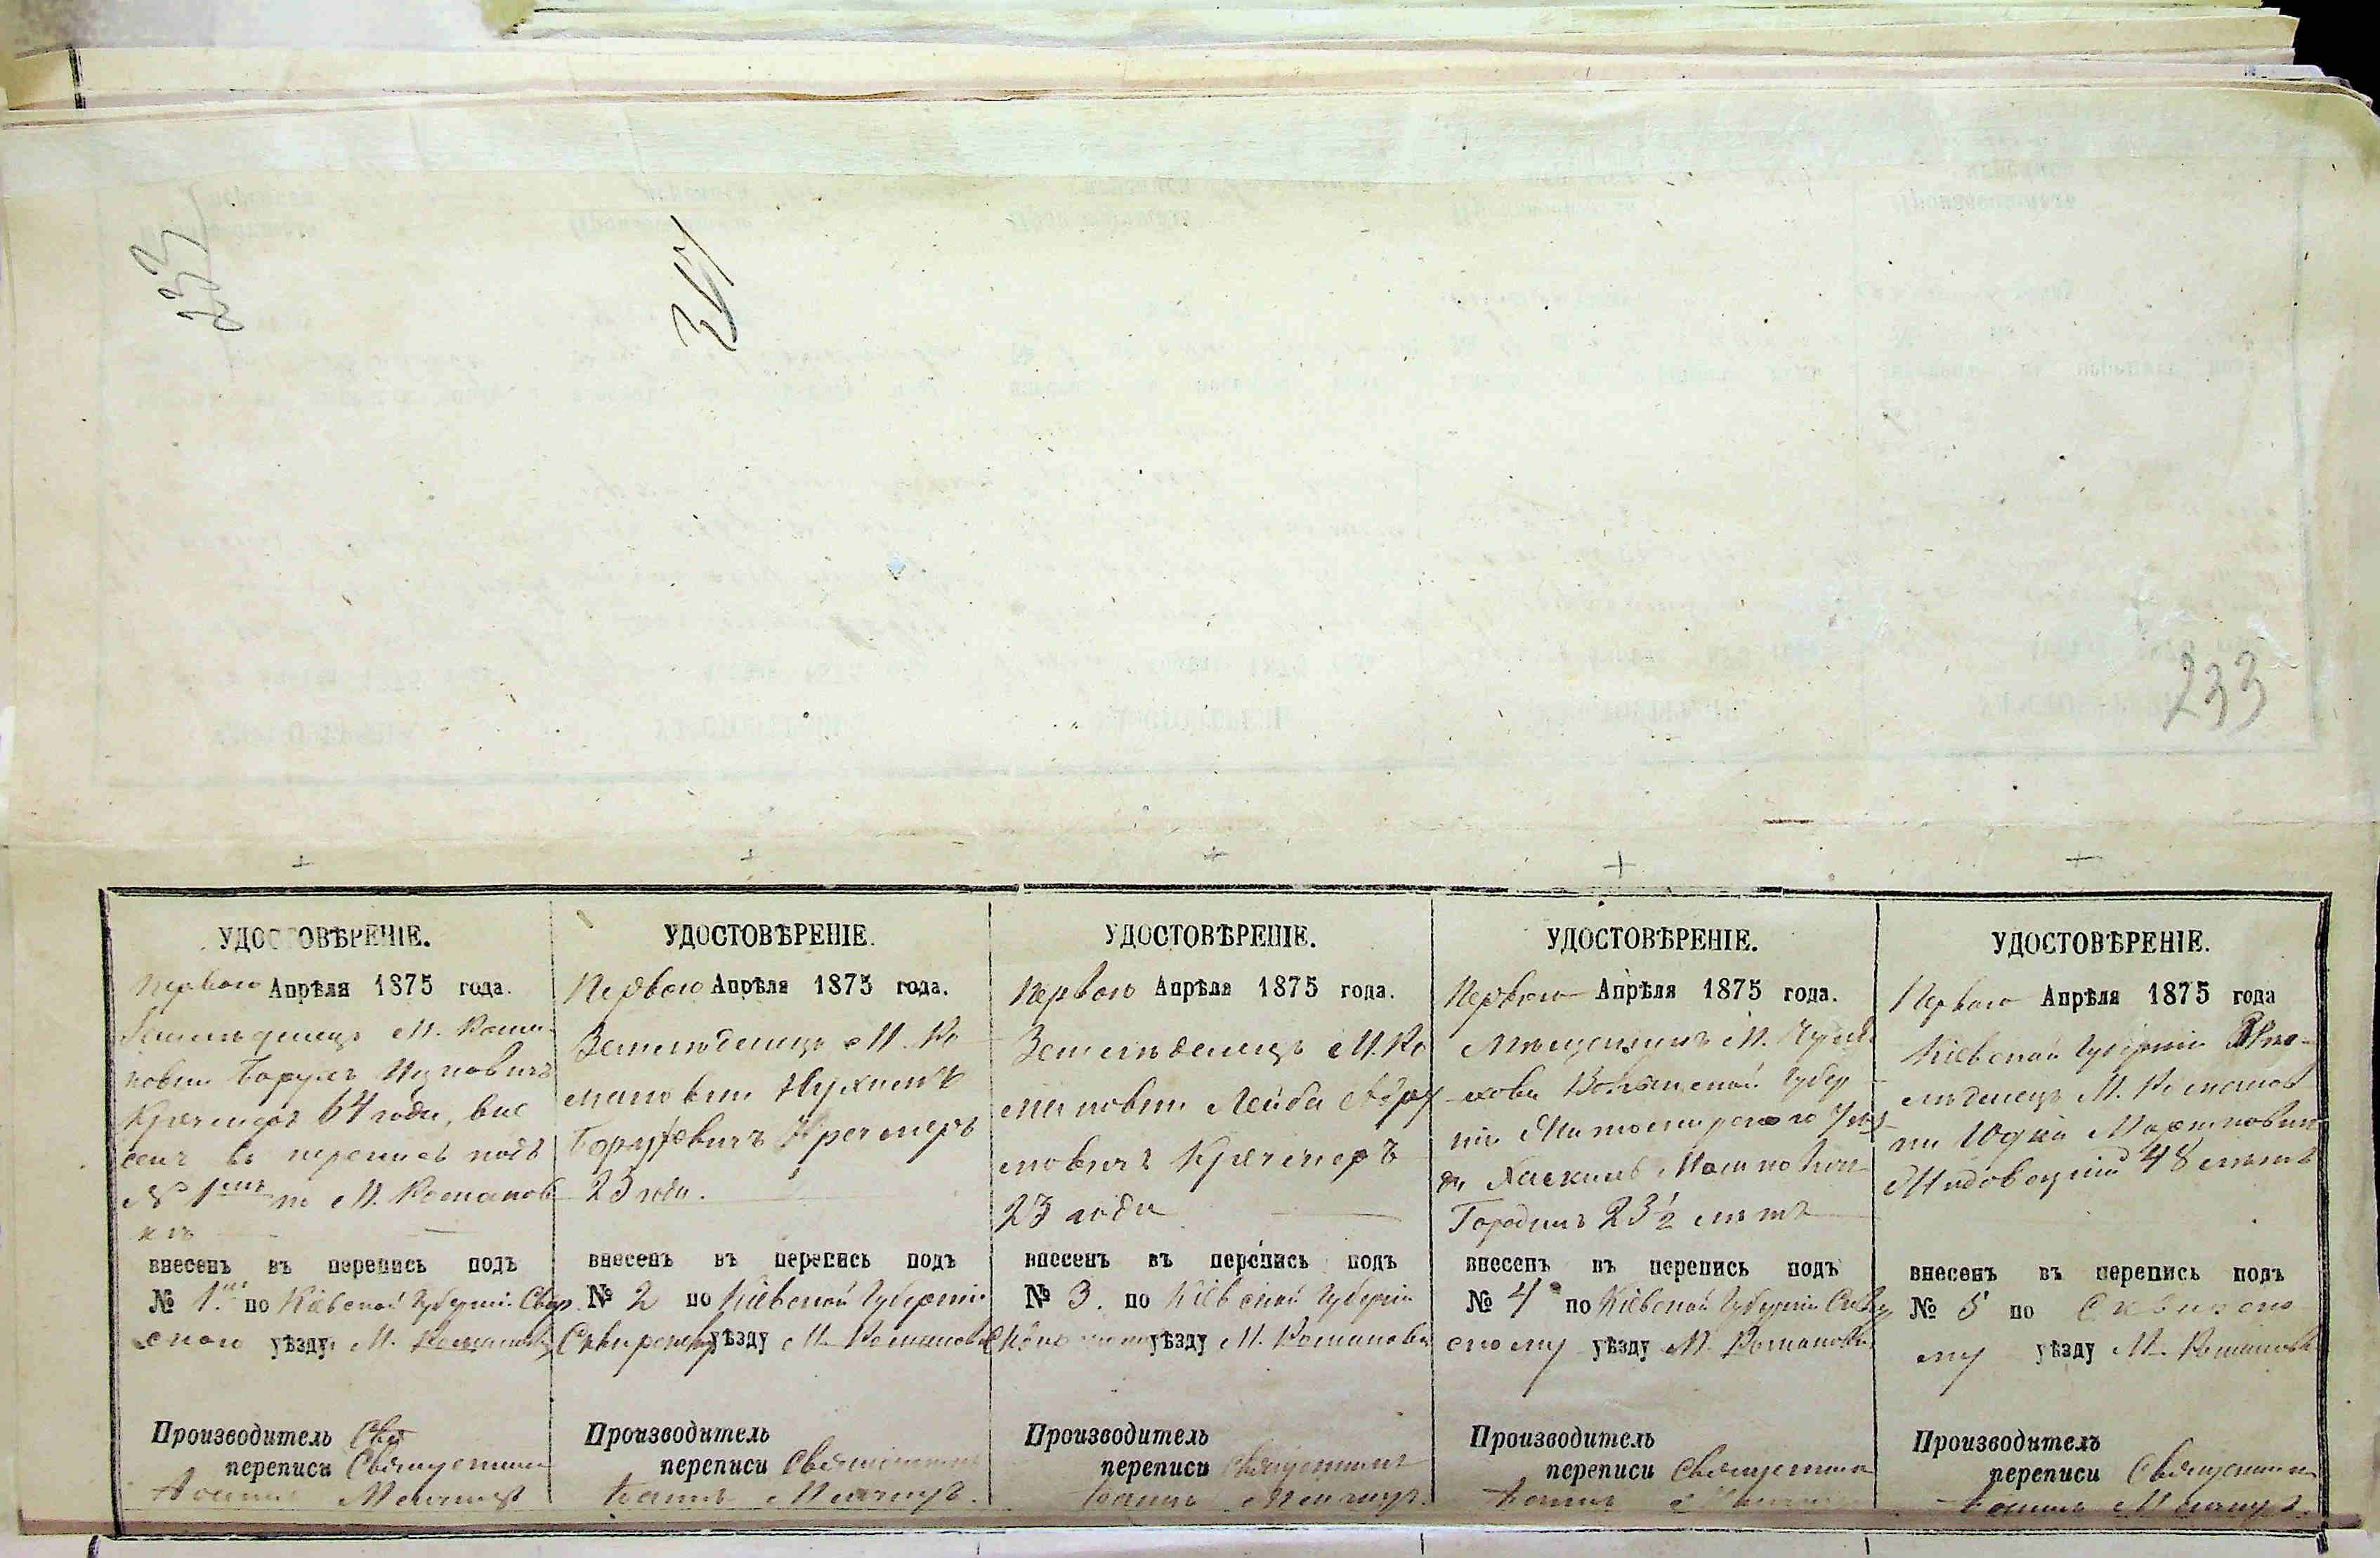 233
317
233
УДОСТОВѢРЕНІЕ.
Перваго Апрѣля 1875 года.
Земледѣлецъ М. Рома-
новки Борухъ Ицковичъ
Кречмеръ 64 года, вне
сенъ въ перепись подъ
№ 1мъ по М. Романов
кѣ
внесенъ въ перепись подъ
№ 1. по Кіевской Губерніи Сквир
скому уѣзду М. Романовкѣ
Производитель Свя
переписи Священникъ
Іоаннъ
УДОСТОВѢРЕНІЕ.
Перваго Апрѣля 1875 года.
Земледѣлецъ М. Ро
мановки Нухимъ
Боруховичъ Кречмеръ
23 года.
внесенъ въ перепись подъ
№ 2 по Кіевской Губерніи
Сквирскому уѣзду М. Романовкѣ
Производитель
переписи Священникъ
Іоаннъ
УДОСТОВѢРЕНІЕ.
Перваго Апрѣля 1875 года.
Земледѣлецъ М. Ро
мановки Лейба Абра
мовичъ Кречмеръ
23 года
внесенъ въ перепись подъ
№ 3. по Кіевской Губерніи
уѣзду М. Романовкѣ
Производитель
переписи Священникъ
Іоаннъ
УДОСТОВѢРЕНІЕ.
Перваго Апрѣля 1875 года.
Мѣщанинъ М. Чудно
хова Волынской Губер
ніи Житомирского Уѣз
да Хаскель Мошковичъ
Городинъ 23 1/2 лѣтъ
внесенъ въ перепись подъ
№ 4 по Кіевской Губерніи Сквир
скому уѣзду М. Романовкѣ
Производитель
переписи Священникъ
Іоаннъ
УДОСТОВѢРЕНІЕ.
Перваго Апрѣля 1875 года
Кіевской Губерніи Зем-
лѣделецъ М. Романов
ки Юдка
48 лѣтъ
внесенъ въ перепись подъ
№ 5 по Сквирско
му уѣзду М. Романовкѣ
Производитель
переписи Священникъ
Іоаннъ